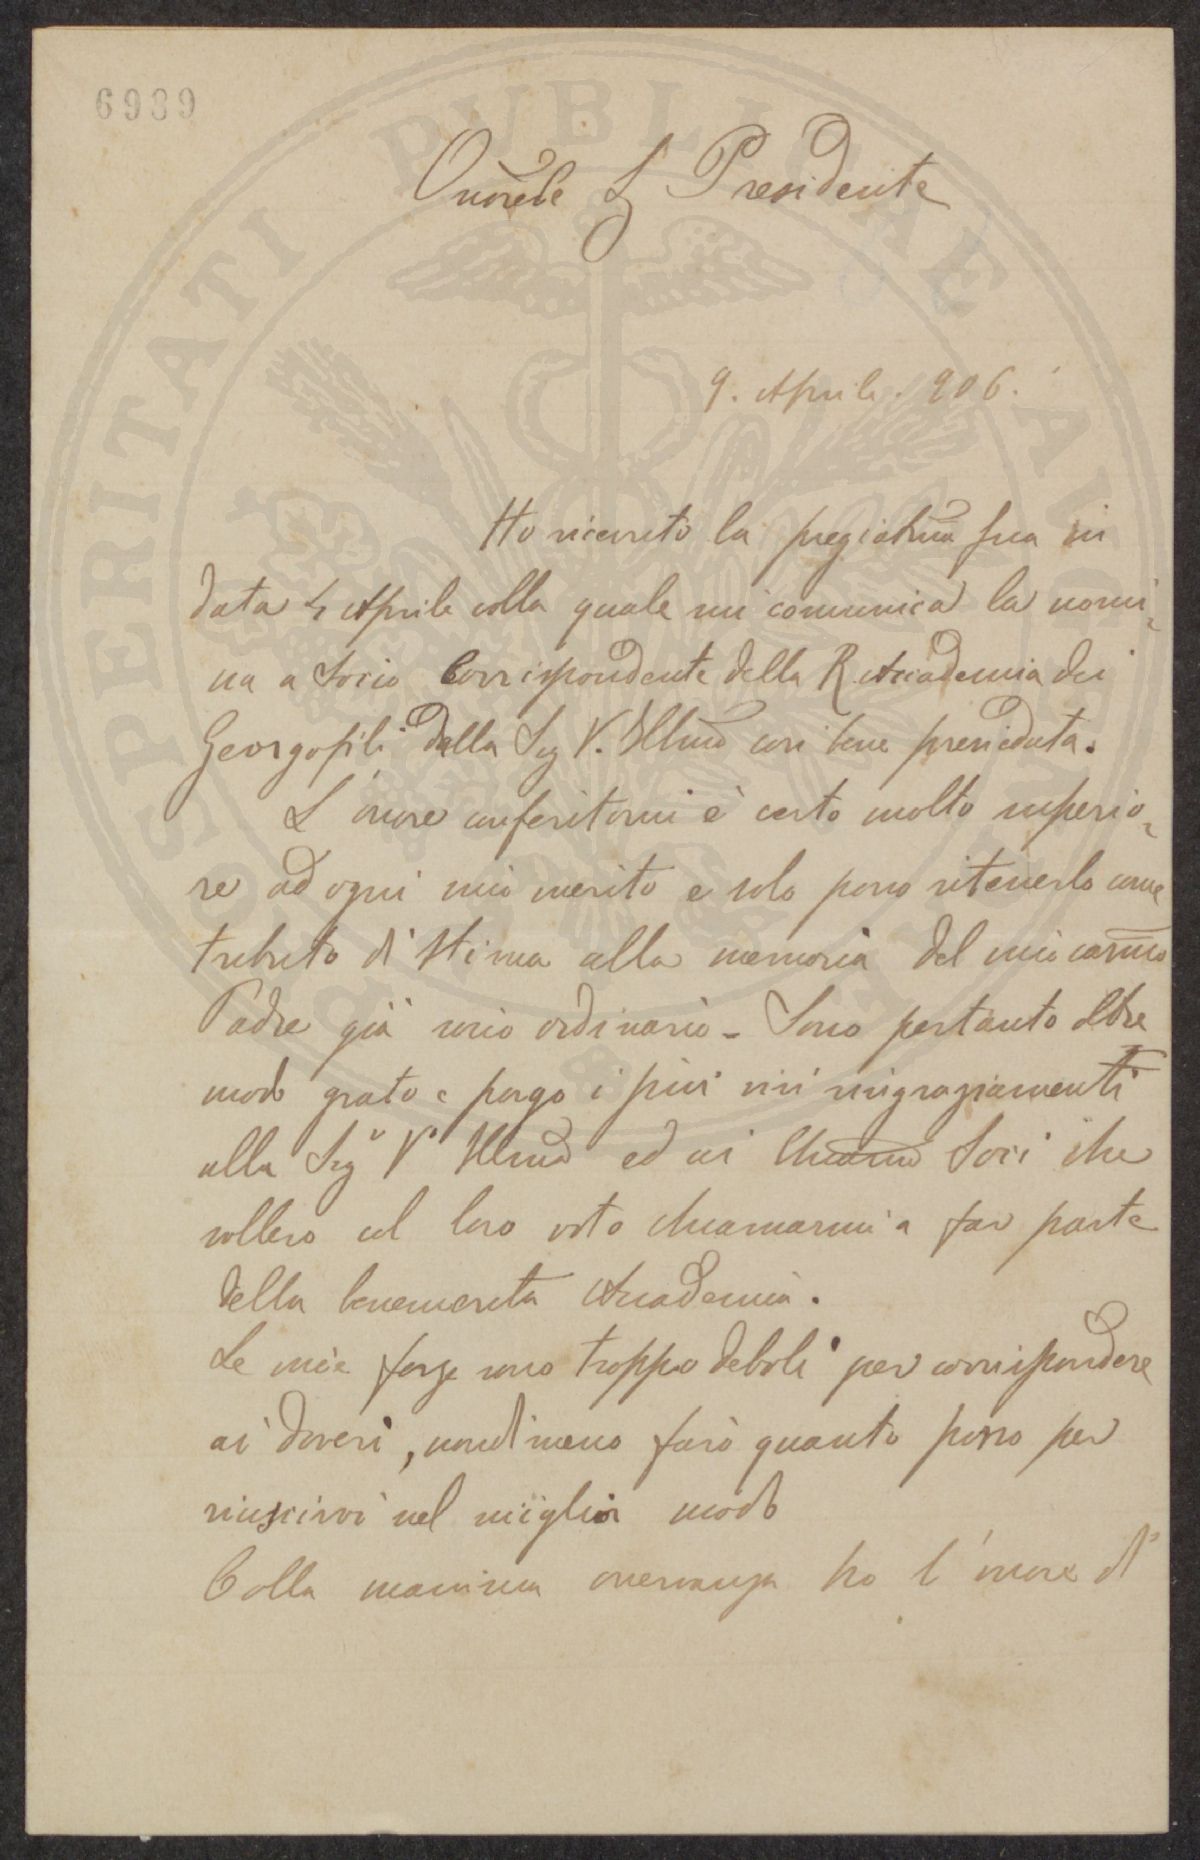 6939
PROSPERITATI PUBLICAE AVGENDAE
Onorele Sig Presidente
9. Aprile. 906.
Ho ricevuto la pregiatma sua in
data 4 Aprile colla quale mi comunica la nomi=
na a Socio Corrispondente della R. Accademia dei
Georgofili dalla Sig V. Illma cosi bene presieduta.
L'onore conferitomi è certo molto superio=
re ad ogni mio merito e solo posso ritenerlo come
tributo di stima alla memoria del mio carmo
Padre già socio ordinario - Sono pertanto oltre
modo grato e porgo i più vivi ringraziamenti
alla Sig V Illma ed ai Chiarmi Soci che
vollero col loro voto chiamarmi a far parte
della benemerita Accademia.
Le mie forze sono troppo deboli per corrispondere
ai doveri, nondimeno farò quanto posso per
riuscirvi nel miglior modo
Colla massima osservanza ho l'onore di